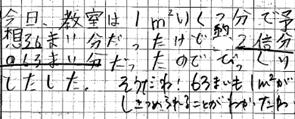 今日、教室は1m²いくつ分で予
想36まい分だったけど、約2倍分
の63まい分だったのでびっくり
しました。そうだね!63まいも1m²が
しきつめられることがわかったね